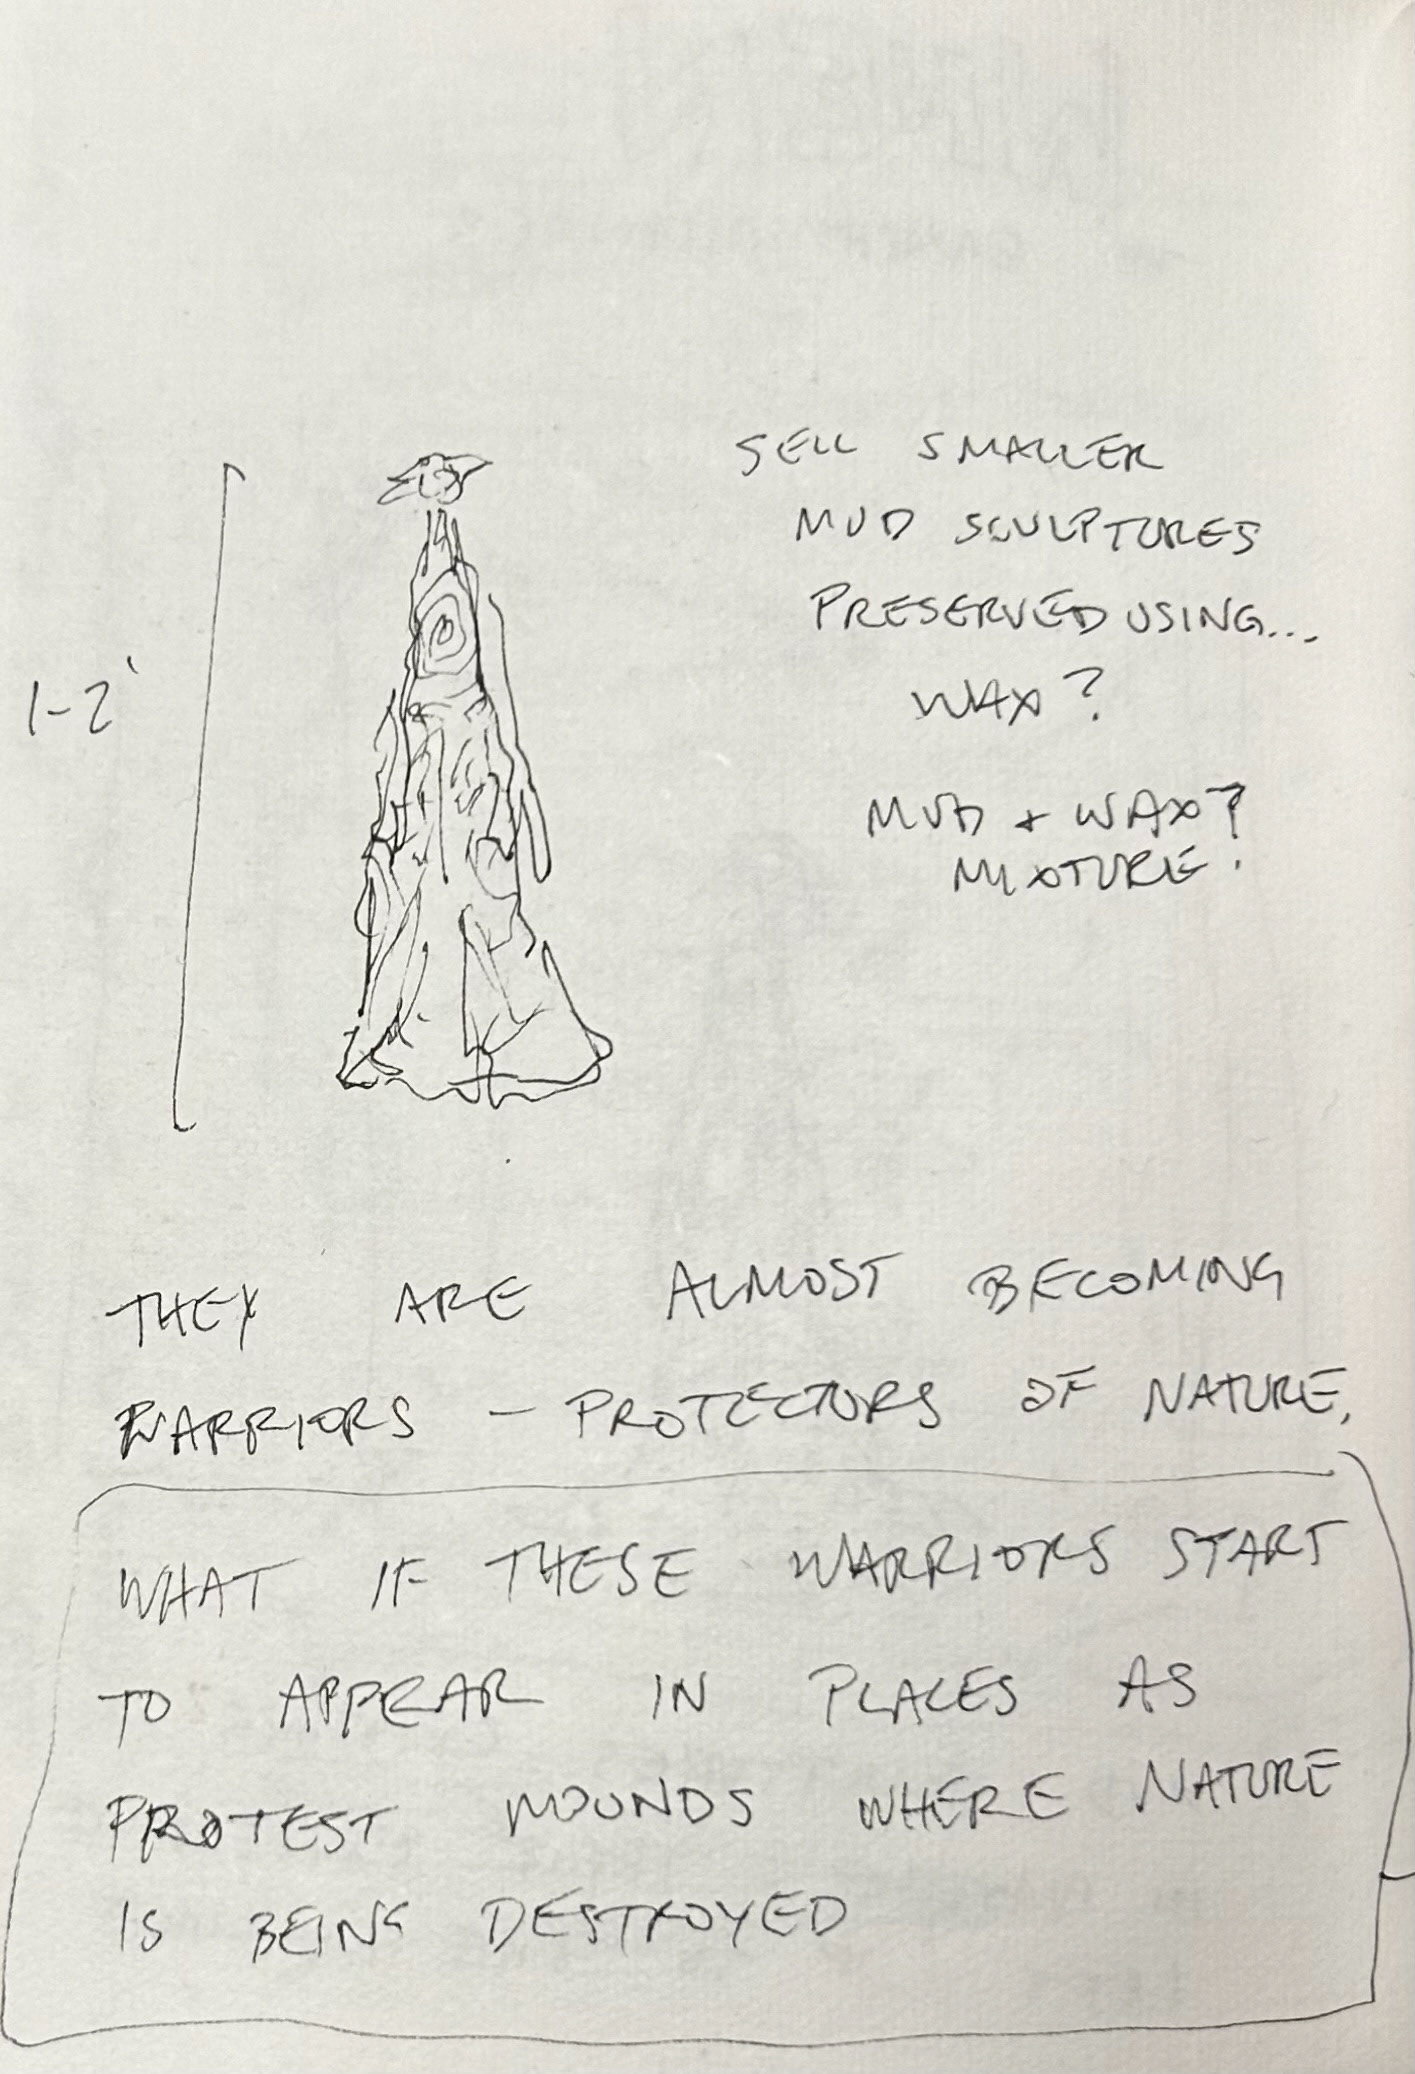 SELL SMALLER
MUD SCULPTURES
PRESERVED USING...
WAX?
MUD + WAX?
MIXTURE.
1-2'
THEY ARE ALMOST BECOMING
WARRIORS - PROTECTORS OF NATURE.
WHAT IF THESE WARRIORS START
TO APPEAR IN PLACES AS
PROTEST MOUNDS WHERE NATURE
IS BEING DESTROYED